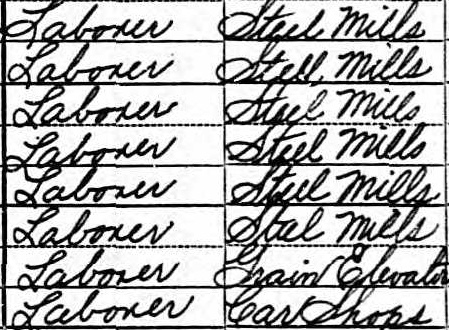 Laborer Steel Mills
Laborer Steel Mills
Laborer Steel Mills
Laborer Steel Mills
Laborer Steel Mills
Laborer Steel Mills
Laborer Grain Elevator
Laborer Car Shops